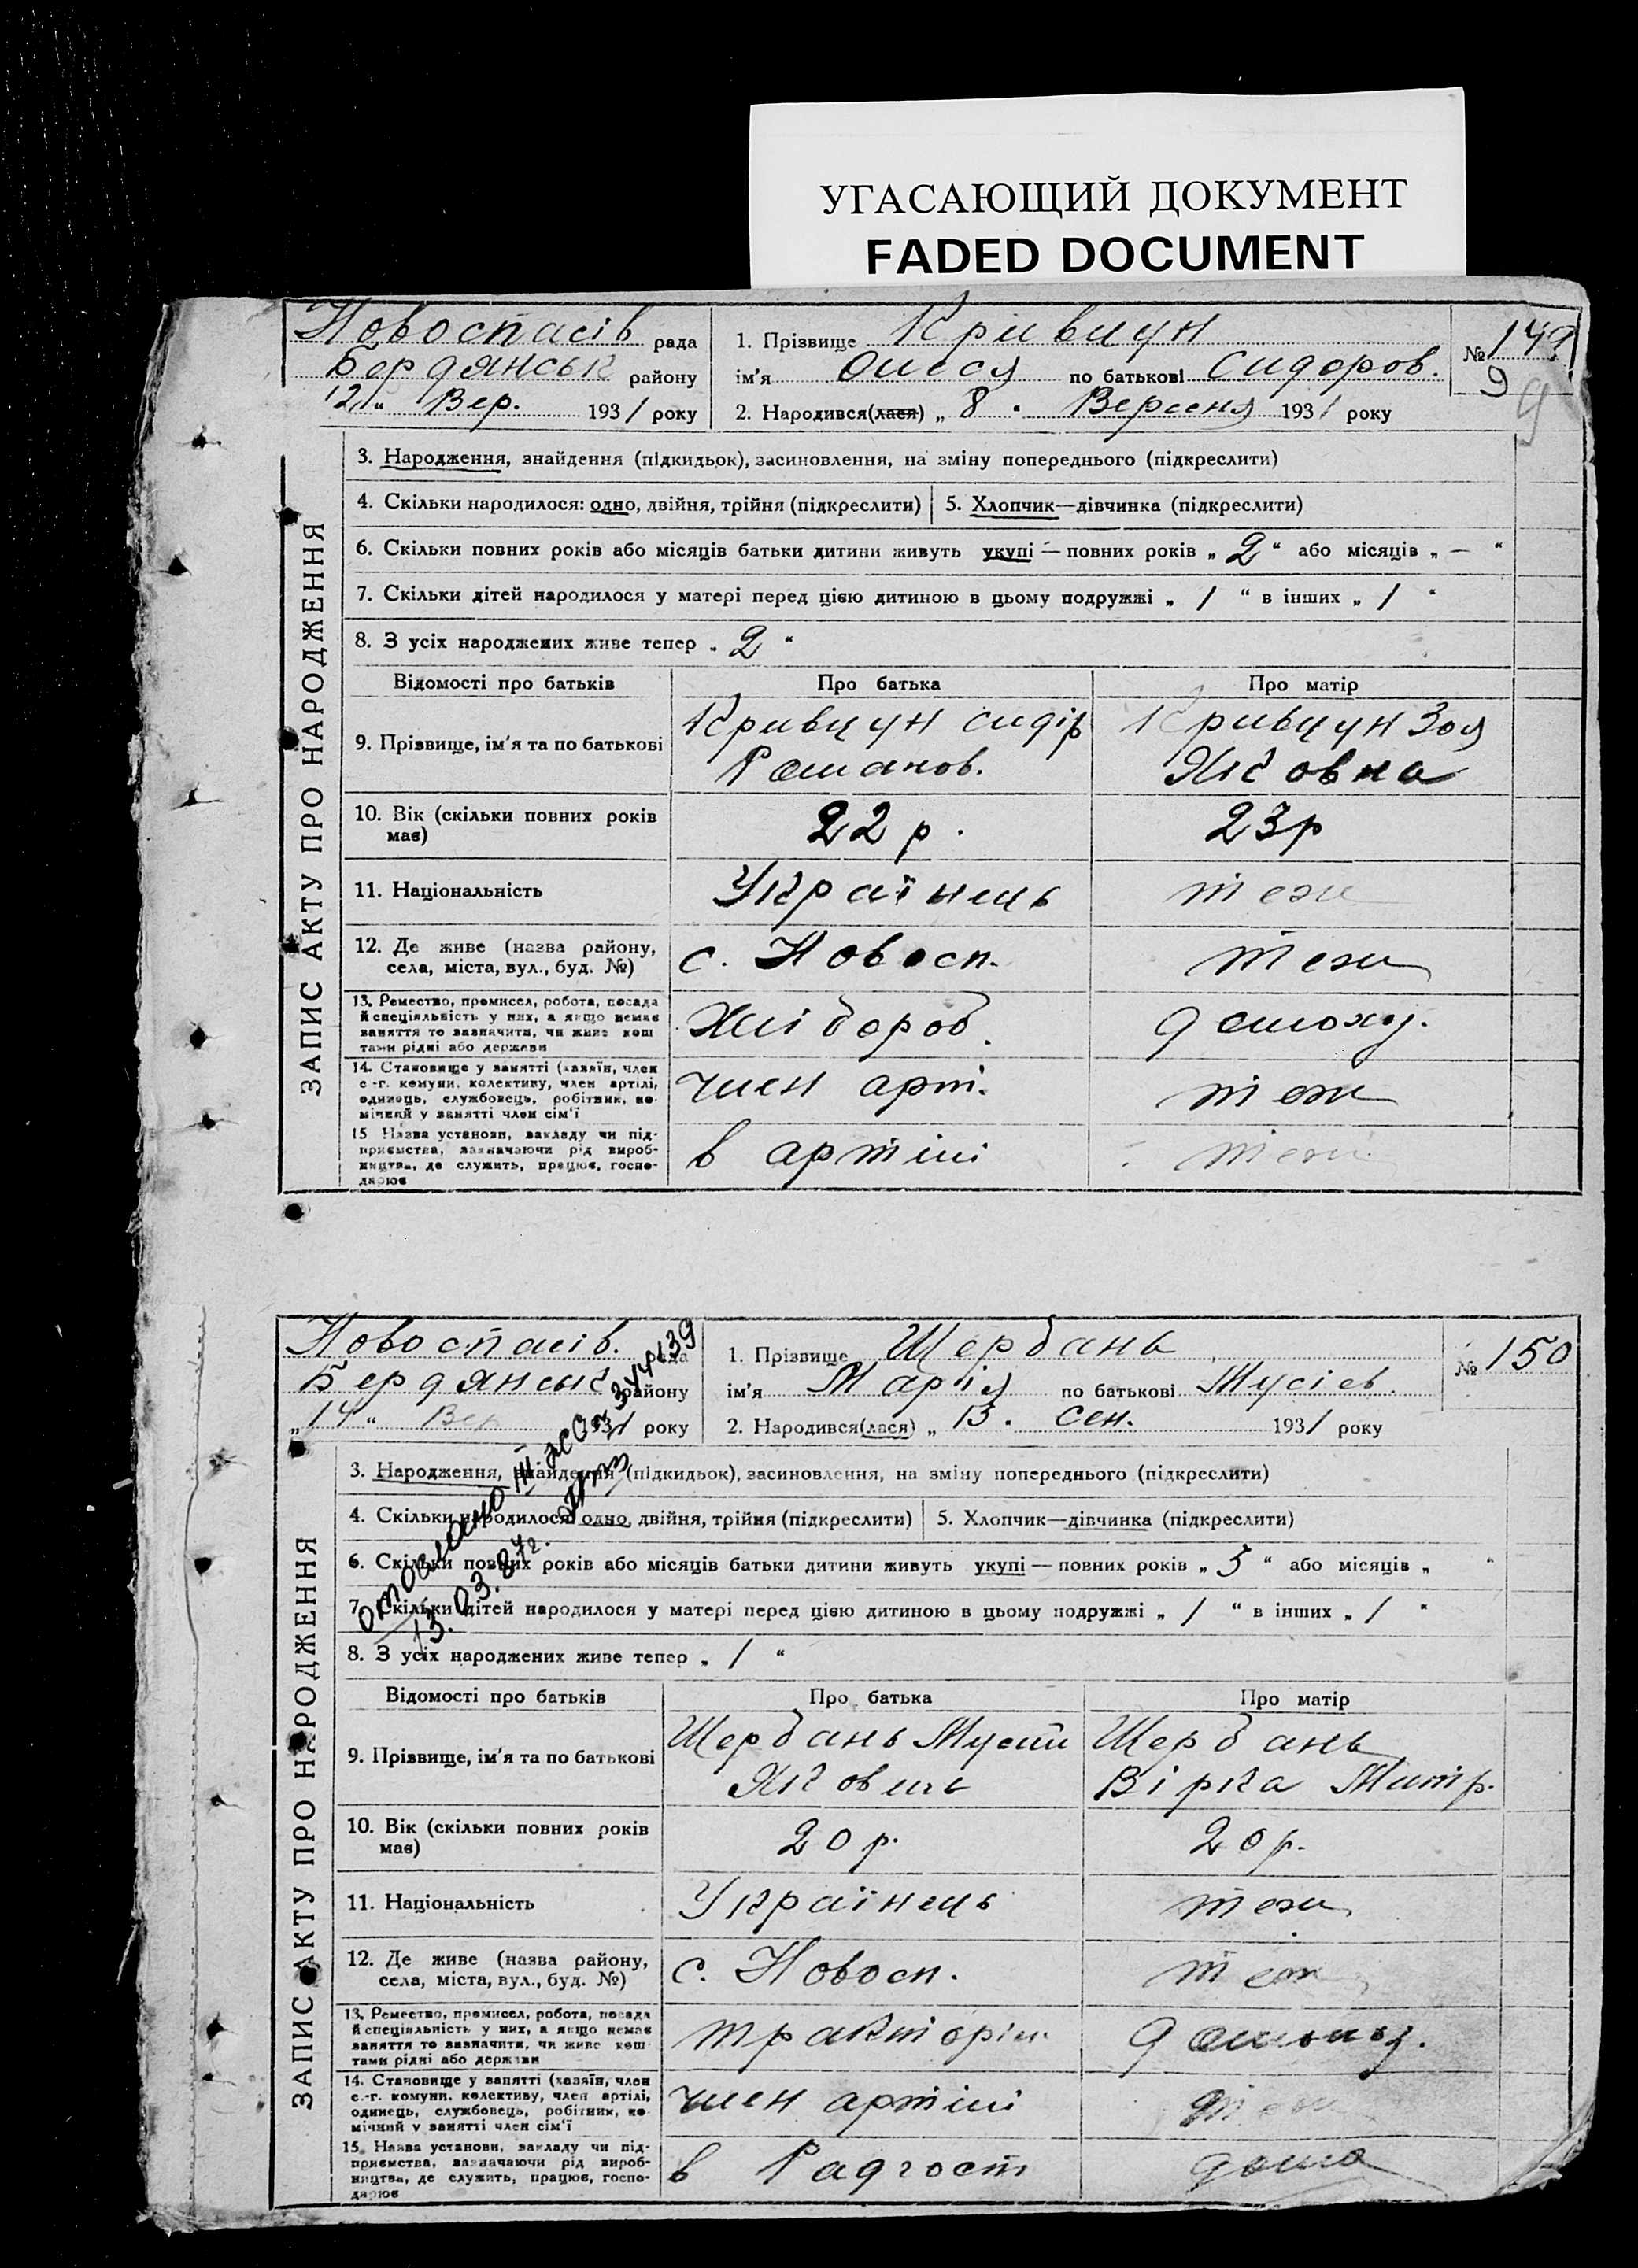 УГАСАЮЩИЙ ДОКУМЕНТ
FADED DOCUMENT
Новоспасів рада
Бердянськ району
12 „ Вер. 1931 року
1. Прізвище Кривцун
ім’я Олеся по батькові Сидоров.
2. Народився(лася) „ 8 . Вересня 1931 року
№ 149
9
9
ЗАПИС АКТУ ПРО НАРОДЖЕННЯ
3. Народження, знайдення (підкидьок), засиновлення, на зміну попереднього (підкреслити)
4. Скільки народилося: одно, двійня, трійня (підкреслити) 5. Хлопчик—дівчинка (підкреслити)
6. Скільки повних років або місяців батьки дитини живуть укупі — повних років „ 2 “ або місяців „ — “
7. Скільки дітей народилося у матері перед цією дитиною в цьому подружжі „ 1 “ в інших „ 1 “
8. З усіх народжених живе тепер „ 2 “
Відомості про батьків Про батька Про матір
9. Прізвище, ім’я та по батькові
Кривцун Сидір
Романов.
Кривцун Зоя
Яковна
10. Вік (скільки повних років
має)
22 р.
23 р
11. Національність Українець теж
12. Де живе (назва району,
села, міста, вул., буд. №)
с. Новосп.
теж
13. Ремество, промисел, робота, посада
й спеціяльність у них, а якщо немає
заняття то зазначити, чи живе кош
тами рідні або держави
Хлібороб.
домохоз.
14. Становище у занятті (хазяїн, член
с.-г. комуни, колективу, член артілі,
одинець, службовець, робітник, по-
мічний у занятті член сім’ї
член арт.
теж
15 Назва установи, закладу чи під-
приємства, зазначаючи рід вироб-
ництва, де служить, працює, госпо-
дарює
в артілі
теж
Новоспасів. рада
Бердянськ району
„ 14 “ Вер 1931 року
1. Прізвище Щербань
ім’я Марія по батькові Мусієв.
2. Народився(лася) „ 13 . Сен. 1931 року
№ 150
13.03.87г.
ЗАПИС АКТУ ПРО НАРОДЖЕННЯ
3. Народження, знайдення (підкидьок), засиновлення, на зміну попереднього (підкреслити)
4. Скільки народилося: одно, двійня, трійня (підкреслити) 5. Хлопчик—дівчинка (підкреслити)
6. Скільки повних років або місяців батьки дитини живуть укупі — повних років „ 5 “ або місяців „ “
7. Скільки дітей народилося у матері перед цією дитиною в цьому подружжі „ 1 “ в інших „ 1 “
8. З усіх народжених живе тепер „ 1 “
Відомості про батьків Про батька Про матір
9. Прізвище, ім’я та по батькові
Щербань Мусій
Якович
Щербань
Вірка Митр.
10. Вік (скільки повних років
має)
20 р.
20 р.
11. Національність Українець теж
12. Де живе (назва району,
села, міста, вул., буд. №)
с. Новосп.
теж
13. Ремество, промисел, робота, посада
й спеціяльність у них, а якщо немає
заняття то зазначити, чи живе кош
тами рідні або держави
тракторіст
домохоз.
14. Становище у занятті (хазяїн, член
с.-г. комуни, колективу, член артілі,
одинець, службовець, робітник, по-
мічний у занятті член сім’ї
член артілі
теж
15. Назва установи, закладу чи під-
приємства, зазначаючи рід вироб-
ництва, де служить, працює, госпо-
дарює
в Радгосп
дома